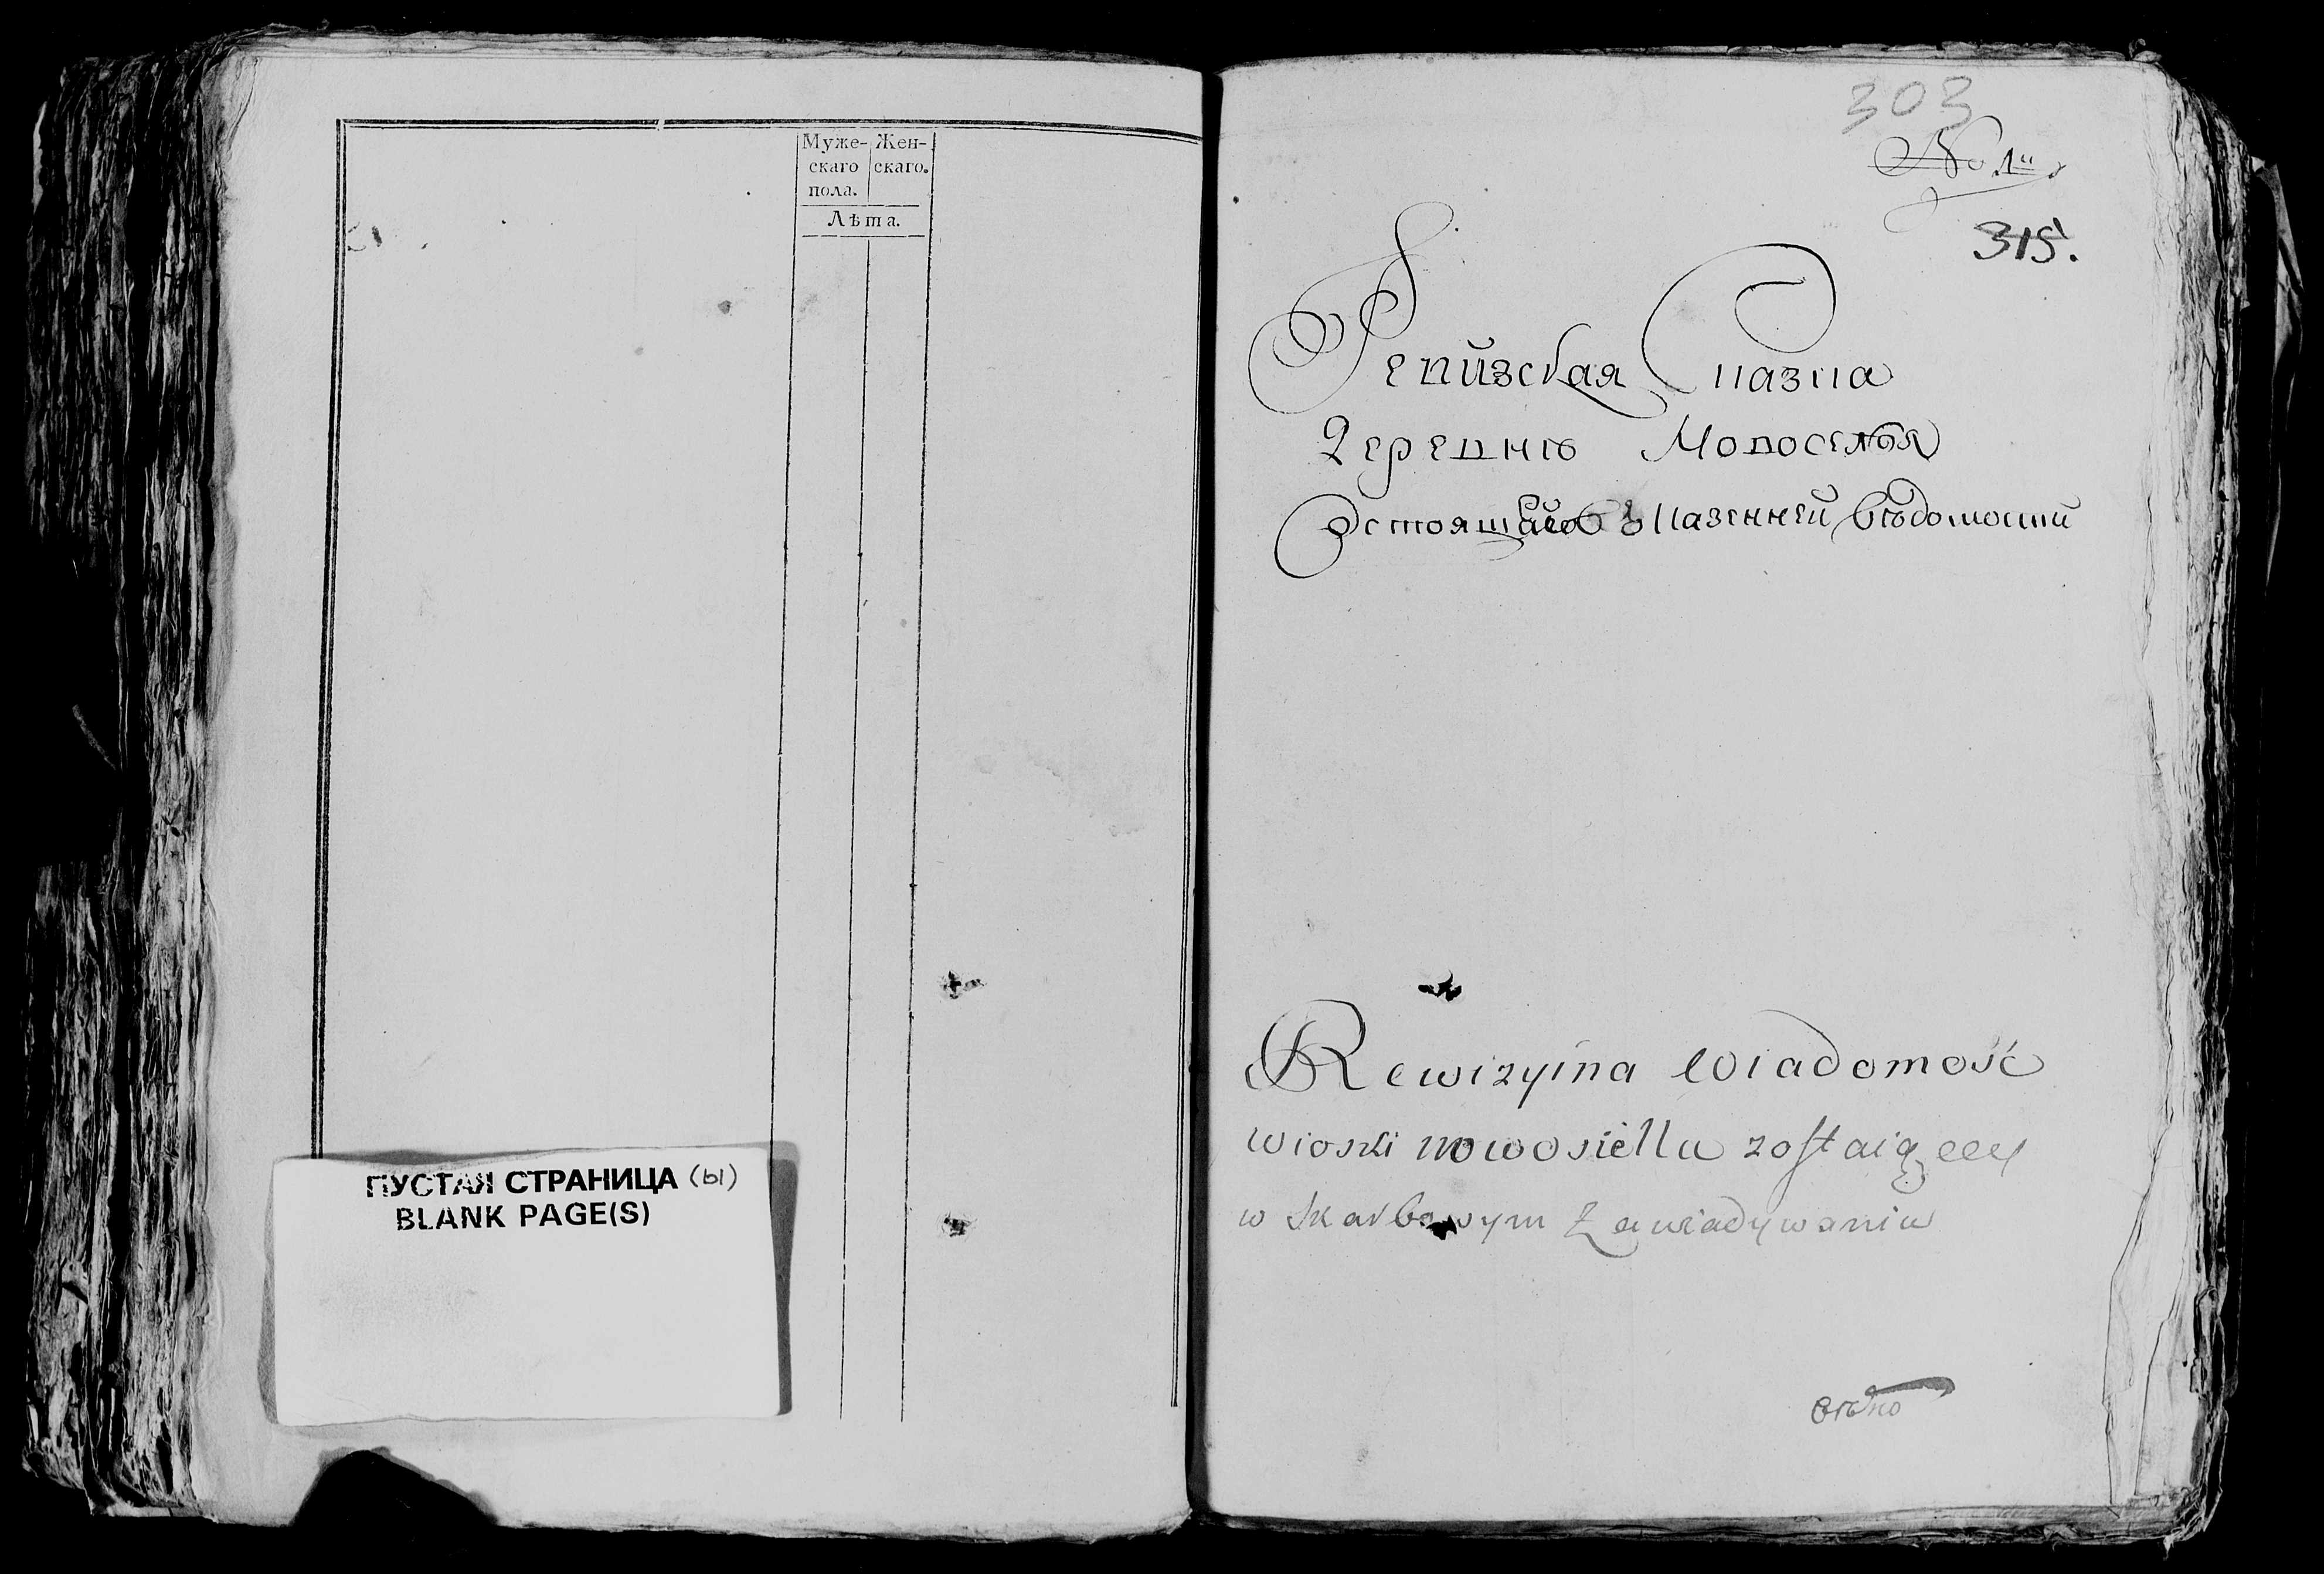 Муже- Жен-
скаго скаго.
пола.
Лѣта.
ПУСТАЯ СТРАНИЦА (ы)
BLANK PAGE(S)
303
No 1й
315.
Ревизская Сказка
Деревнѣ Новоселья
состоящей въ Казенней вѣдомости
Rewizyina Wiadomość
wioski nowosiella zostaiącey
w skarbowym Zawiadywaniu